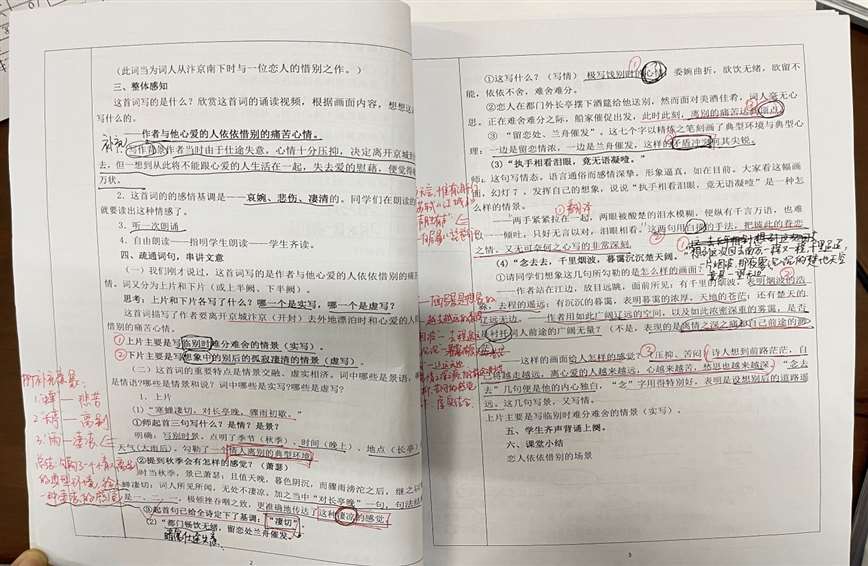 (此词当为词人从汴京南下时与一位恋人的惜别之作。)
三、整体感知
这首词写的是什么?欣赏这首词的诵读视频,根据画面内容,想想这
写什么的。
——作者与他心爱的人依依惜别的痛苦心情。
写作背景作者当时由于仕途失意,心情十分压抑,决定离开京城到
去,但一想到从此将不能跟心爱的人生活在一起,失去爱的慰藉,便觉得
万状。
2. 这首词的的感情基调是——哀婉、悲伤、凄清的。同学们在朗读的
就要读出这种情感了。
3. 听一次朗诵
4. 自由朗读——指明学生朗读——学生齐读。
四、疏通词句,串讲文意
(一)我们刚才说过,这首词写的是作者与他心爱的人依依惜别的痛
情。词又分为上片和下片(或上半阙、下半阙)。
思考:上片和下片各写了什么?哪一个是实写,哪一个是虚写?
这首词描写了作者要离开京城汴京(开封)去外地漂泊时和心爱的人
惜别的痛苦心情。
①上片主要是写临别时难分难舍的情景(实写)。
②下片主要是写想象中的别后的孤寂凄清的情景(虚写)。
(二)这首词的重要特点是情景交融、虚实相济。词中哪些是景语,哪
是情语?哪些是情景和说?词中哪些是实写?哪些是虚写?
1. 上片
(1)“寒蝉凄切,对长亭晚,骤雨初歇。”
①师起首三句写了什么?是情?是景?
明确:写别时景。点明了季节(秋季)、时间(晚上)、地点(长亭)
天气(大雨后)。勾勒了一个情人离别的典型环境
②提到秋季会有怎样的感觉?(萧瑟)
时当秋季,景已萧瑟;且值天晚,暮色阴沉,而骤雨滂沱之后,继之以
蝉凄切:词人所见所闻,无处不凄凉,加之当中“对长亭晚”一句,句法结
是一、二、一,极顿挫吞咽之致,更准确地传达了这种凄凉的感觉
③起首句已给全诗定下了基调:“凄切”
(2)“都门畅饮无绪,留恋处兰舟催发。”
2
①这写什么?(写情) 极写饯别时的心情,委婉曲折,欲饮无绪,欲留不
能,依依不舍,难舍难分。
②恋人在都门外长亭摆下酒筵给他送别,然而面对美酒佳肴,词人毫无心
思。正在难舍难分之际,船家催促出发,此时此刻,离别的痛苦达到顶点。
③ “留恋处、兰舟催发”,这七个字以精炼之笔刻画了典型环境与典型心
理:一边是留恋情浓,一边是兰舟催发,这样的矛盾冲突何其尖锐。
(3)“执手相看泪眼,竟无语凝噎。”
师:这句写情态。语言通俗而感情深挚,形象逼真,如在目前。大家看这幅画
面,幻灯7,发挥自己的想象,说说“执手相看泪眼,竟无语凝噎”是一种怎
么样的情景。
——两手紧紧拉在一起,两眼被酸楚的泪水模糊,便纵有千言万语,也难
一倾吐,只好无言以对,泪眼相看。这两句用白描的手法,把彼此的眷恋
之情、又无可奈何之心写的非常深刻。
(4)“念去去,千里烟波,暮霭沉沉楚天阔。”
①请同学们想象这几句所勾勒的是怎么样的画面?
——作者站在江边,放目远眺,面前所见:有千里的烟波,表明烟波的浩
去程的遥远;有沉沉的暮霭,表明暮霭的浓厚,天地的苍茫;还有楚天的
辽远无边。——作者用如此广阔辽远的空间,以及如此浓密深重的雾霭,是否
是衬托词人前途的广阔无量?(不是,表现的是离情之深之痛和自己前途的渺
——这样的画面给人怎样的感觉?(压抑、苦闷)诗人想到前路茫茫,自
己将越走越远,离心爱的人越来越远,心越来越苦,愁思也越来越深。“念去
去”几句便是他的内心独白,“念”字用得特别好,表明是设想别后的道路遥
远。这几句写景,又写情。
上片主要是写临别时难分难舍的情景(实写)。
五、学生齐声背诵上阕。
六、课堂小结
恋人依依惜别的场景
3